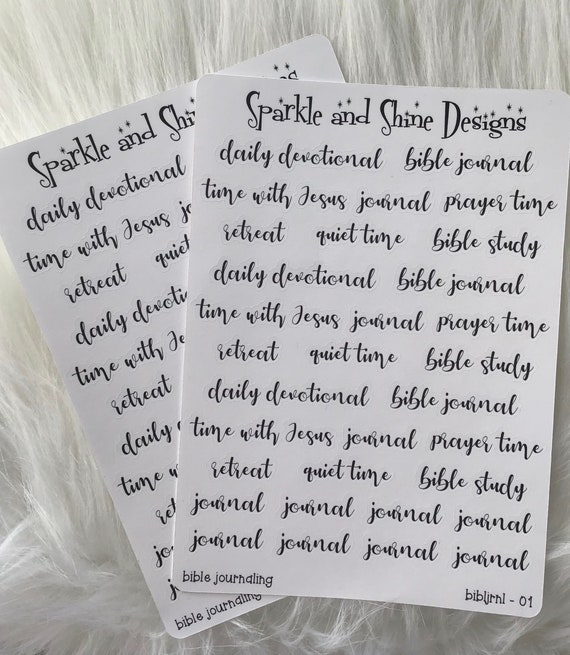 Sparkle and Shi
daily devotional
time with Jesus jo
retreat quiet
daily devotion
time with Je
retreat
daily d
time wi
ret
jo
jo
bible journaling
Sparkle and Shine Designs
daily devotional bible journal
time with Jesus journal prayer time
retreat quiet time bible study
daily devotional bible journal
time with Jesus journal prayer time
retreat quiet time bible study
daily devotional bible journal
time with Jesus journal prayer time
retreat quiet time bible study
journal journal journal journal
journal journal journal journal
bible journaling bibljrnl - 01